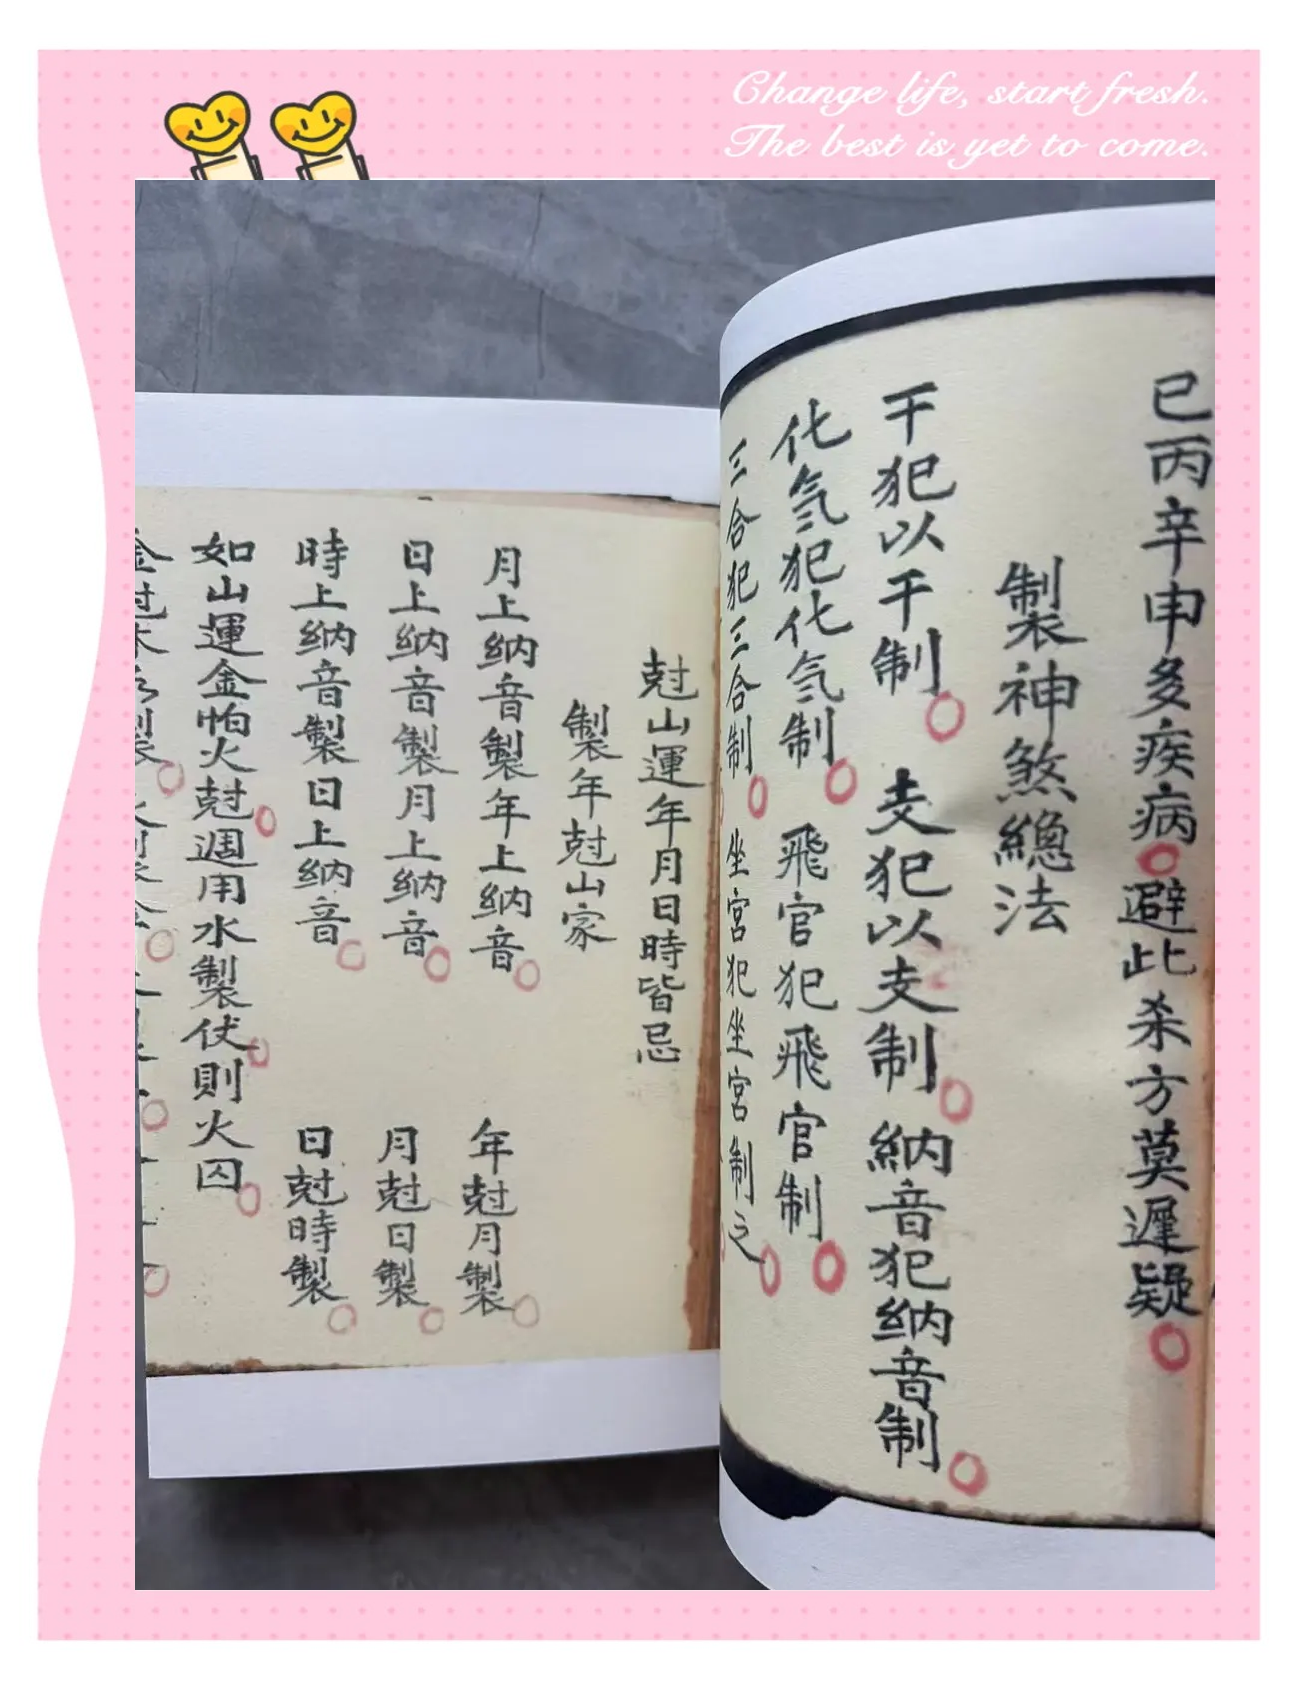 Change life, start fresh.
The best is yet to come.
已丙辛申多疾病避此杀方莫遲疑
製神煞總法
干犯以干制 支犯以支制 納音犯納音制
化氣犯化氣制 飛官犯飛官制
三合犯三合制 坐宮犯坐宮制之
尅山運年月日時皆忌
製年尅山家
月上納音製年上納音 年尅月製
日上納音製月上納音 月尅日製
時上納音製日上納音 日尅時製
如山運金怕火尅週用水製伏則火囚